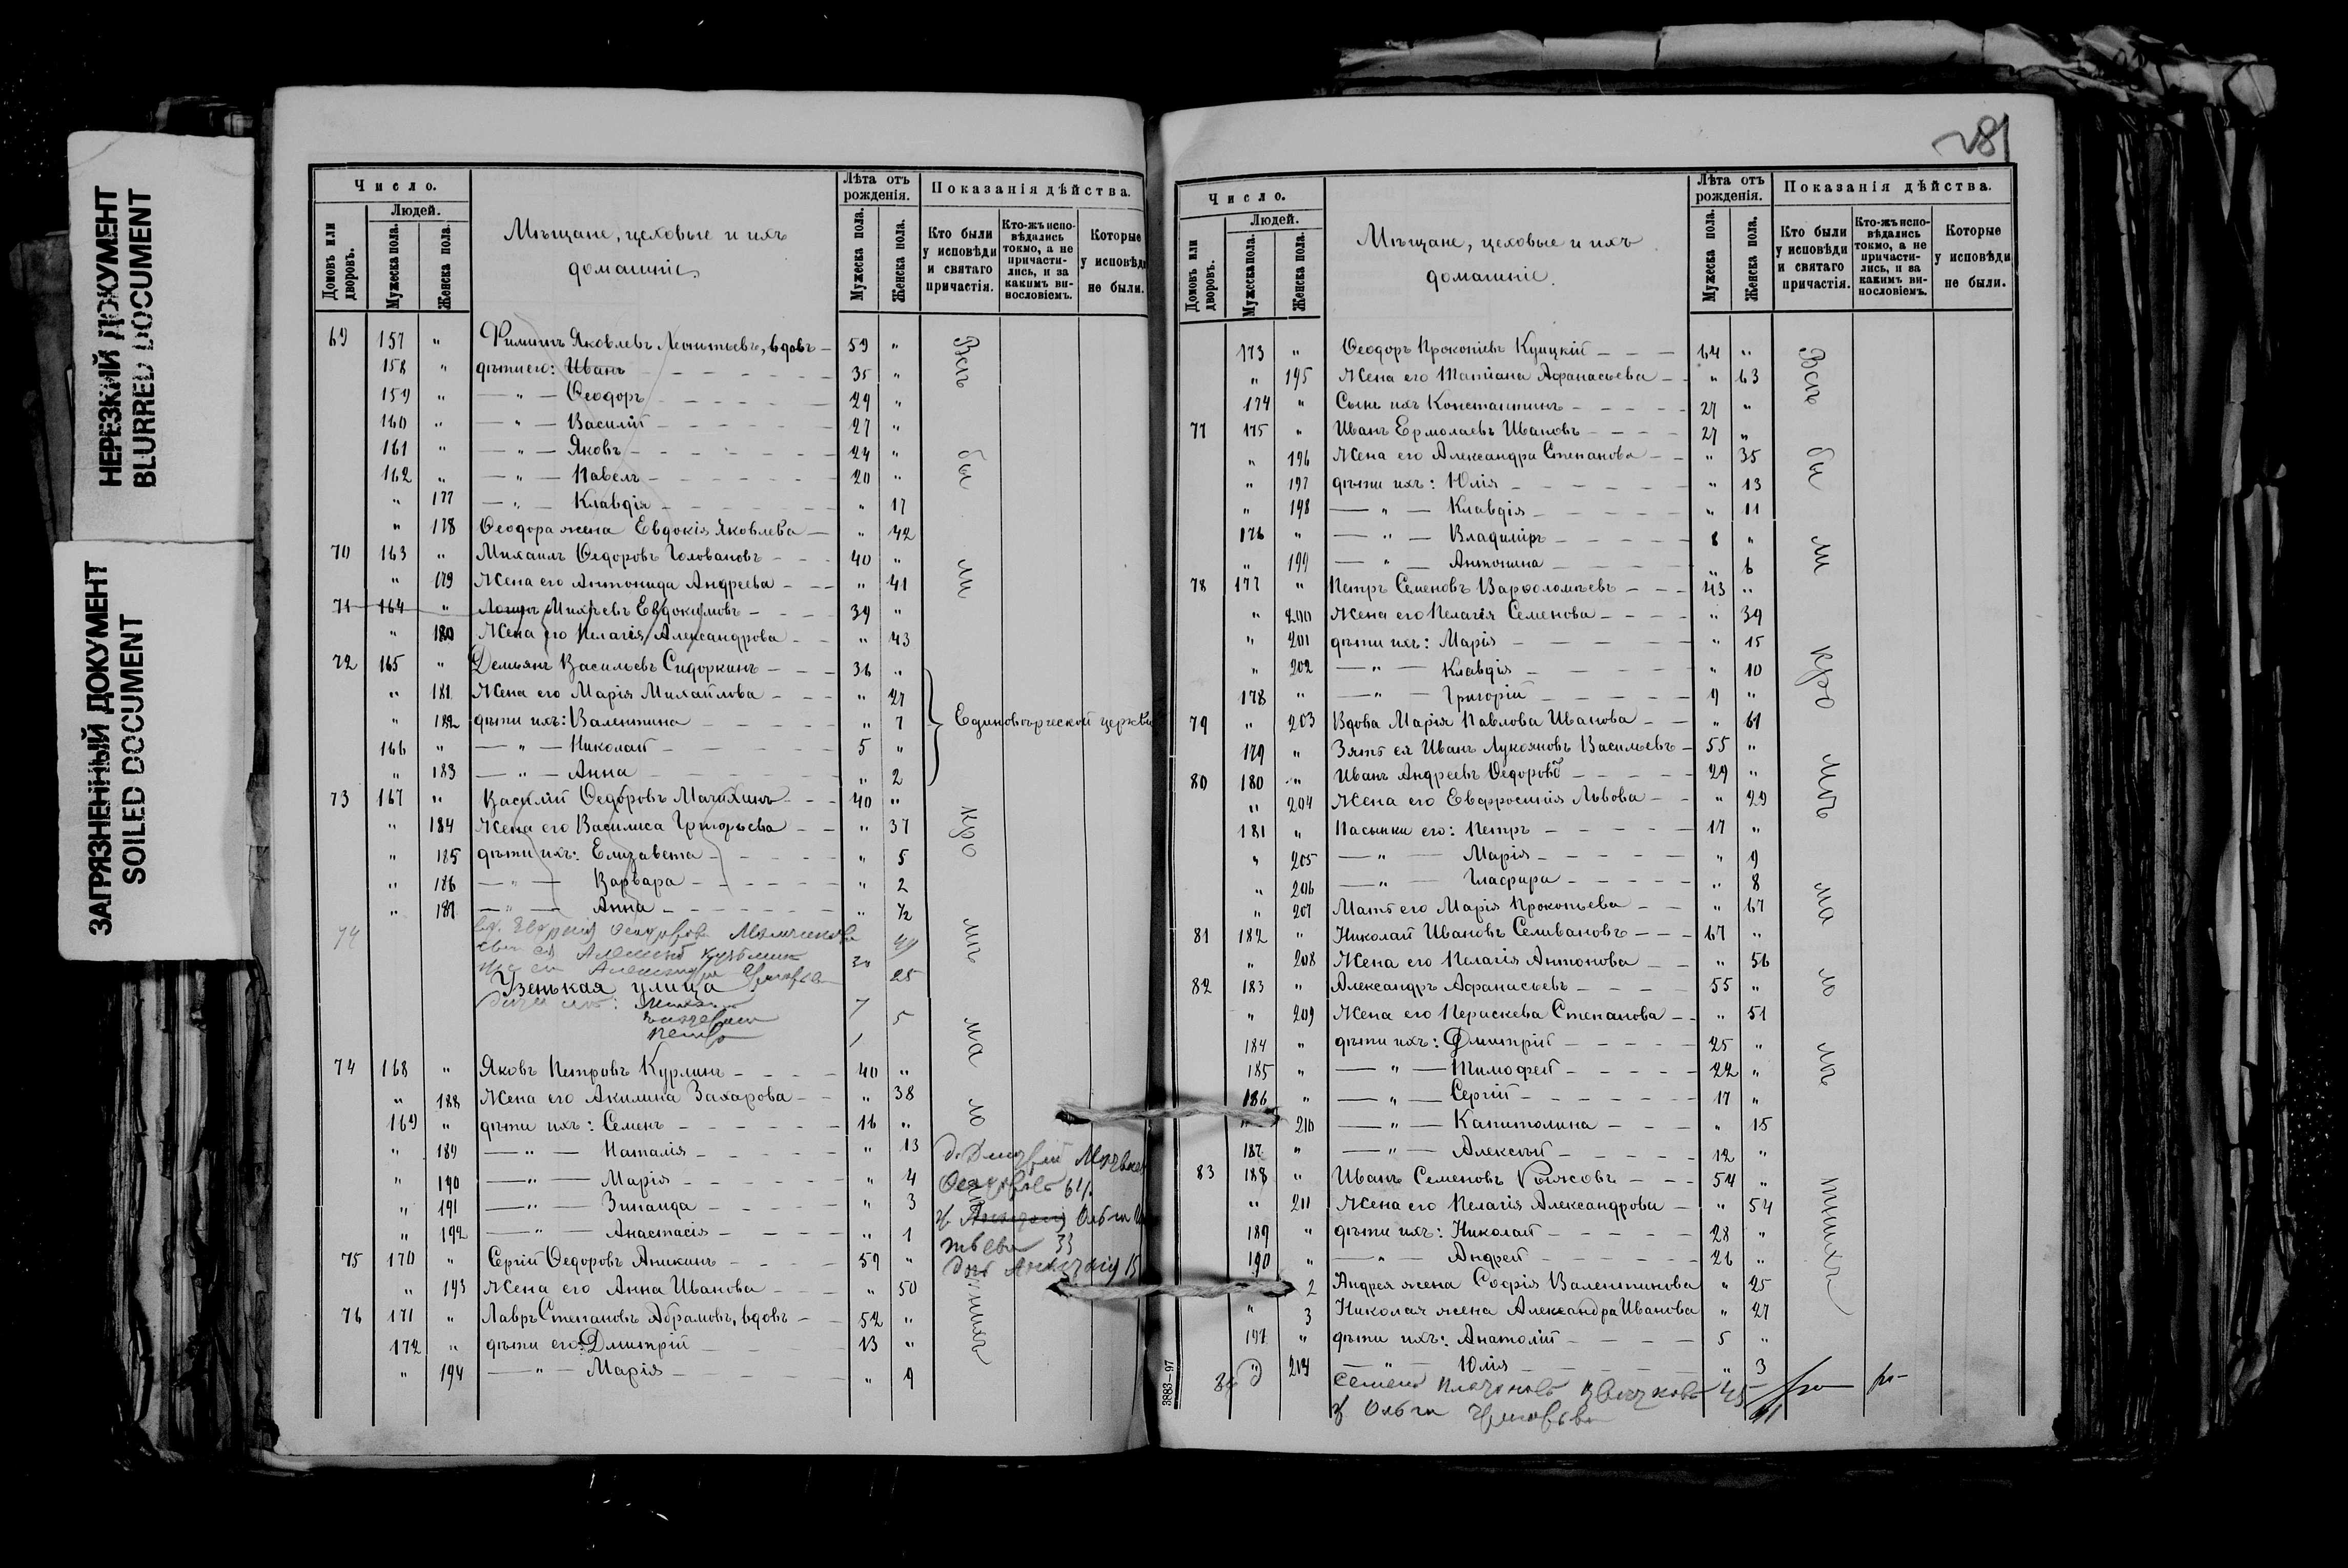 НЕРЕЗКИЙ ДОКУМЕНТ
BLURRED DOCUMENT
ЗАГРЯЗНЕННЫЙ ДОКУМЕНТ
SOILED DOCUMENT
Число.
Людей.
Домовъ или дворовъ.
Мужеска пола.
Женска пола.
Мѣщане, цеховые и ихъ
домашніе.
Лѣта отъ рожденія.
Мужеска пола.
Женска пола.
Показанія дѣйства.
Кто были у исповѣди и святаго причастія.
Кто-жъ испо-вѣдались токмо, а не причасти-лись, и за какимъ ви-нословіемъ.
Которые у исповѣди не были.
69 157 " Филиппъ Яковлевъ Леонтьевъ, вдовъ — 59 "
158 " дѣти его: Иванъ 35 "
159 " — " — Ѳеодоръ 29 "
160 " — " — Василій 27 "
161 " — " — Яковъ 24 "
162 " — " — Павелъ 20 "
" 177 — " — Клавдія " 17
" 178 Ѳеодора жена Евдокія Яковлева — " 42
70 163 " Михаилъ Ѳедоровъ Головановъ 40 "
" 179 Жена его Антонида Андреева " 41
71 164 " Михѣевъ Евдокимовъ 39 "
" 180 Жена его Пелагія Александрова " 43
72 165 " Демьянъ Васильевъ Сидоркинъ 36 "
" 181 Жена его Марія Михайлова " 27
" 182 дѣти ихъ: Валентина " 7
166 " — " — Николай 5 "
" 183 — " — Анна " 2
Единовѣрческой церкви
73 167 " Василій Ѳедоровъ Мачихинъ 40 "
" 184 Жена его Василиса Григорьева " 37
" 185 дѣти ихъ: Елизавета " 5
" 186 — " — Варвара " 2
" 187 — " — Анна " 1/2
74 49
25
Узенькая улица
7
5
1
74 168 " Яковъ Петровъ Курлинъ 40 "
" 188 Жена его Акилина Захарова " 38
169 " дѣти ихъ: Семенъ 16 "
" 189 — " — Наталія " 13
" 190 — " — Марія " 4
" 191 — " — Зинаида " 3
" 192 — " — Анастасія " 1
75 170 " Сергій Ѳедоровъ Аникинъ 59 "
" 193 Жена его Анна Иванова " 50
76 171 " Лавръ Степановъ Абрамовъ, вдовъ 52 "
172 " дѣти его: Дмитрій 13 "
" 194 — " — Марія " 9
Всѣ бы ли кро мѣ ма лолѣтнихъ
281
Число.
Людей.
Домовъ или дворовъ.
Мужеска пола.
Женска пола.
Мѣщане, цеховые и ихъ
домашніе.
Лѣта отъ рожденія.
Мужеска пола.
Женска пола.
Показанія дѣйства.
Кто были у исповѣди и святаго причастія.
Кто-жъ испо-вѣдались токмо, а не причасти-лись, и за какимъ ви-нословіемъ.
Которые у исповѣди не были.
173 " Ѳеодоръ Прокопіевъ Купцкій 64 "
" 195 Жена его Татіана Афанасьева " 63
174 " Сынъ ихъ Константинъ 27 "
77 175 " Иванъ Ермолаевъ Ивановъ 27 "
" 196 Жена его Александра Степанова " 35
" 197 дѣти ихъ: Юлія " 13
" 198 — " — Клавдія " 11
176 " — " — Владиміръ 8 "
" 199 — " — Антонина " 6
78 177 " Петръ Семеновъ Варѳоломѣевъ 43 "
" 200 Жена его Пелагія Семенова " 39
" 201 дѣти ихъ: Марія " 15
" 202 — " — Клавдія " 10
178 " — " — Григорій 9 "
79 " 203 Вдова Марія Павлова Иванова " 61
179 " Зять ея Иванъ Лукояновъ Васильевъ 55 "
80 180 " Иванъ Андреевъ Ѳедоровъ 29 "
" 204 Жена его Евфросинія Львова " 29
181 " Пасынки его: Петръ 17 "
" 205 — " — Марія " 9
" 206 — " — Глафира " 8
" 207 Мать его Марія Прокопьева " 67
81 182 " Николай Ивановъ Селивановъ 67 "
" 208 Жена его Пелагія Антонова " 56
82 183 " Александръ Афанасьевъ 55 "
" 209 Жена его Параскева Степанова " 51
184 " дѣти ихъ: Дмитрій 25 "
185 " — " — Тимофей 22 "
186 " — " — Сергій 17 "
" 210 — " — Капитолина " 15
187 " — " — Алексѣй 12 "
83 188 " Иванъ Семеновъ 54 "
" 211 Жена его Пелагія Александрова " 54
189 " дѣти ихъ: Николай 28 "
190 " — " — Андрей 26 "
2 Андрея жена Софія Валентинова " 25
" 3 Николая жена Александра Иванова " 27
191 " дѣти ихъ: Анатолій 5 "
" 214 — " — Юлія " 3
84 Семенъ 45
ж Ольга Григорьева
Всѣ бы ли кро мѣ ма ло лѣ тнихъ
3883—97